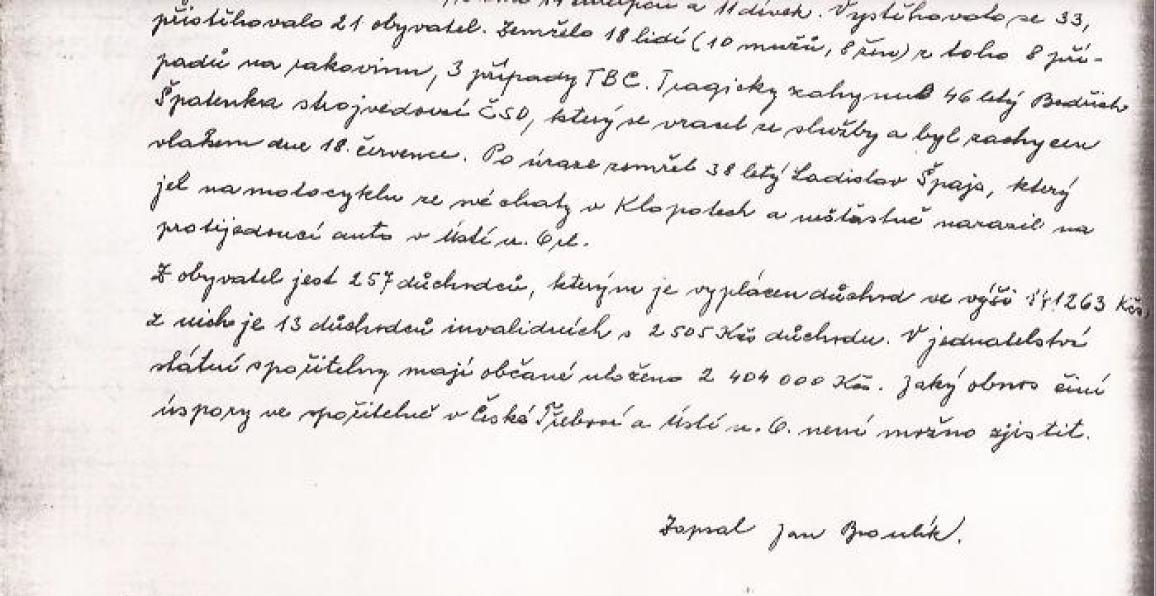 14 chlapců a 11 dívek. Vystěhovalo se 33,
přistěhovalo 21 obyvatel. Zemřelo 18 lidí (10 mužů, 8 žen) z toho 8 pří-
padů na rakovinu, 3 případy TBC. Tragicky zahynul 46 letý Bedřich
Špatenka strojvedoucí ČSD, který se vracel ze služby a byl zachycen
vlakem dne 18. července. Po úraze zemřel 38 letý Ladislav Špajs, který
jel na motocyklu ze své chaty v Klopotech a nešťastně narazil na
protijedoucí auto v Ústí n. Orl.
Z obyvatel jest 257 důchodců, kterým je vyplácen důchod ve výši 1263 Kčs,
z nich je 13 důchodců invalidních s 2 505 Kčs důchodu. V jednatelství
státní spořitelny mají občané uloženo 2 404 000 Kčs. Jaký obnos činí
úspory ve spořitelně v České Třebové a Ústí n. O. není možno zjistit.
Zapsal Jan